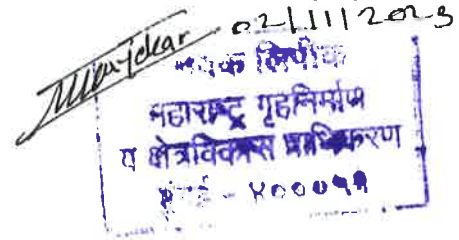 02/11/2023
लिपीक
महाराष्ट्र गृहनिर्माण
व क्षेत्रविकास प्राधिकरण
मुंबई - ४०००५१